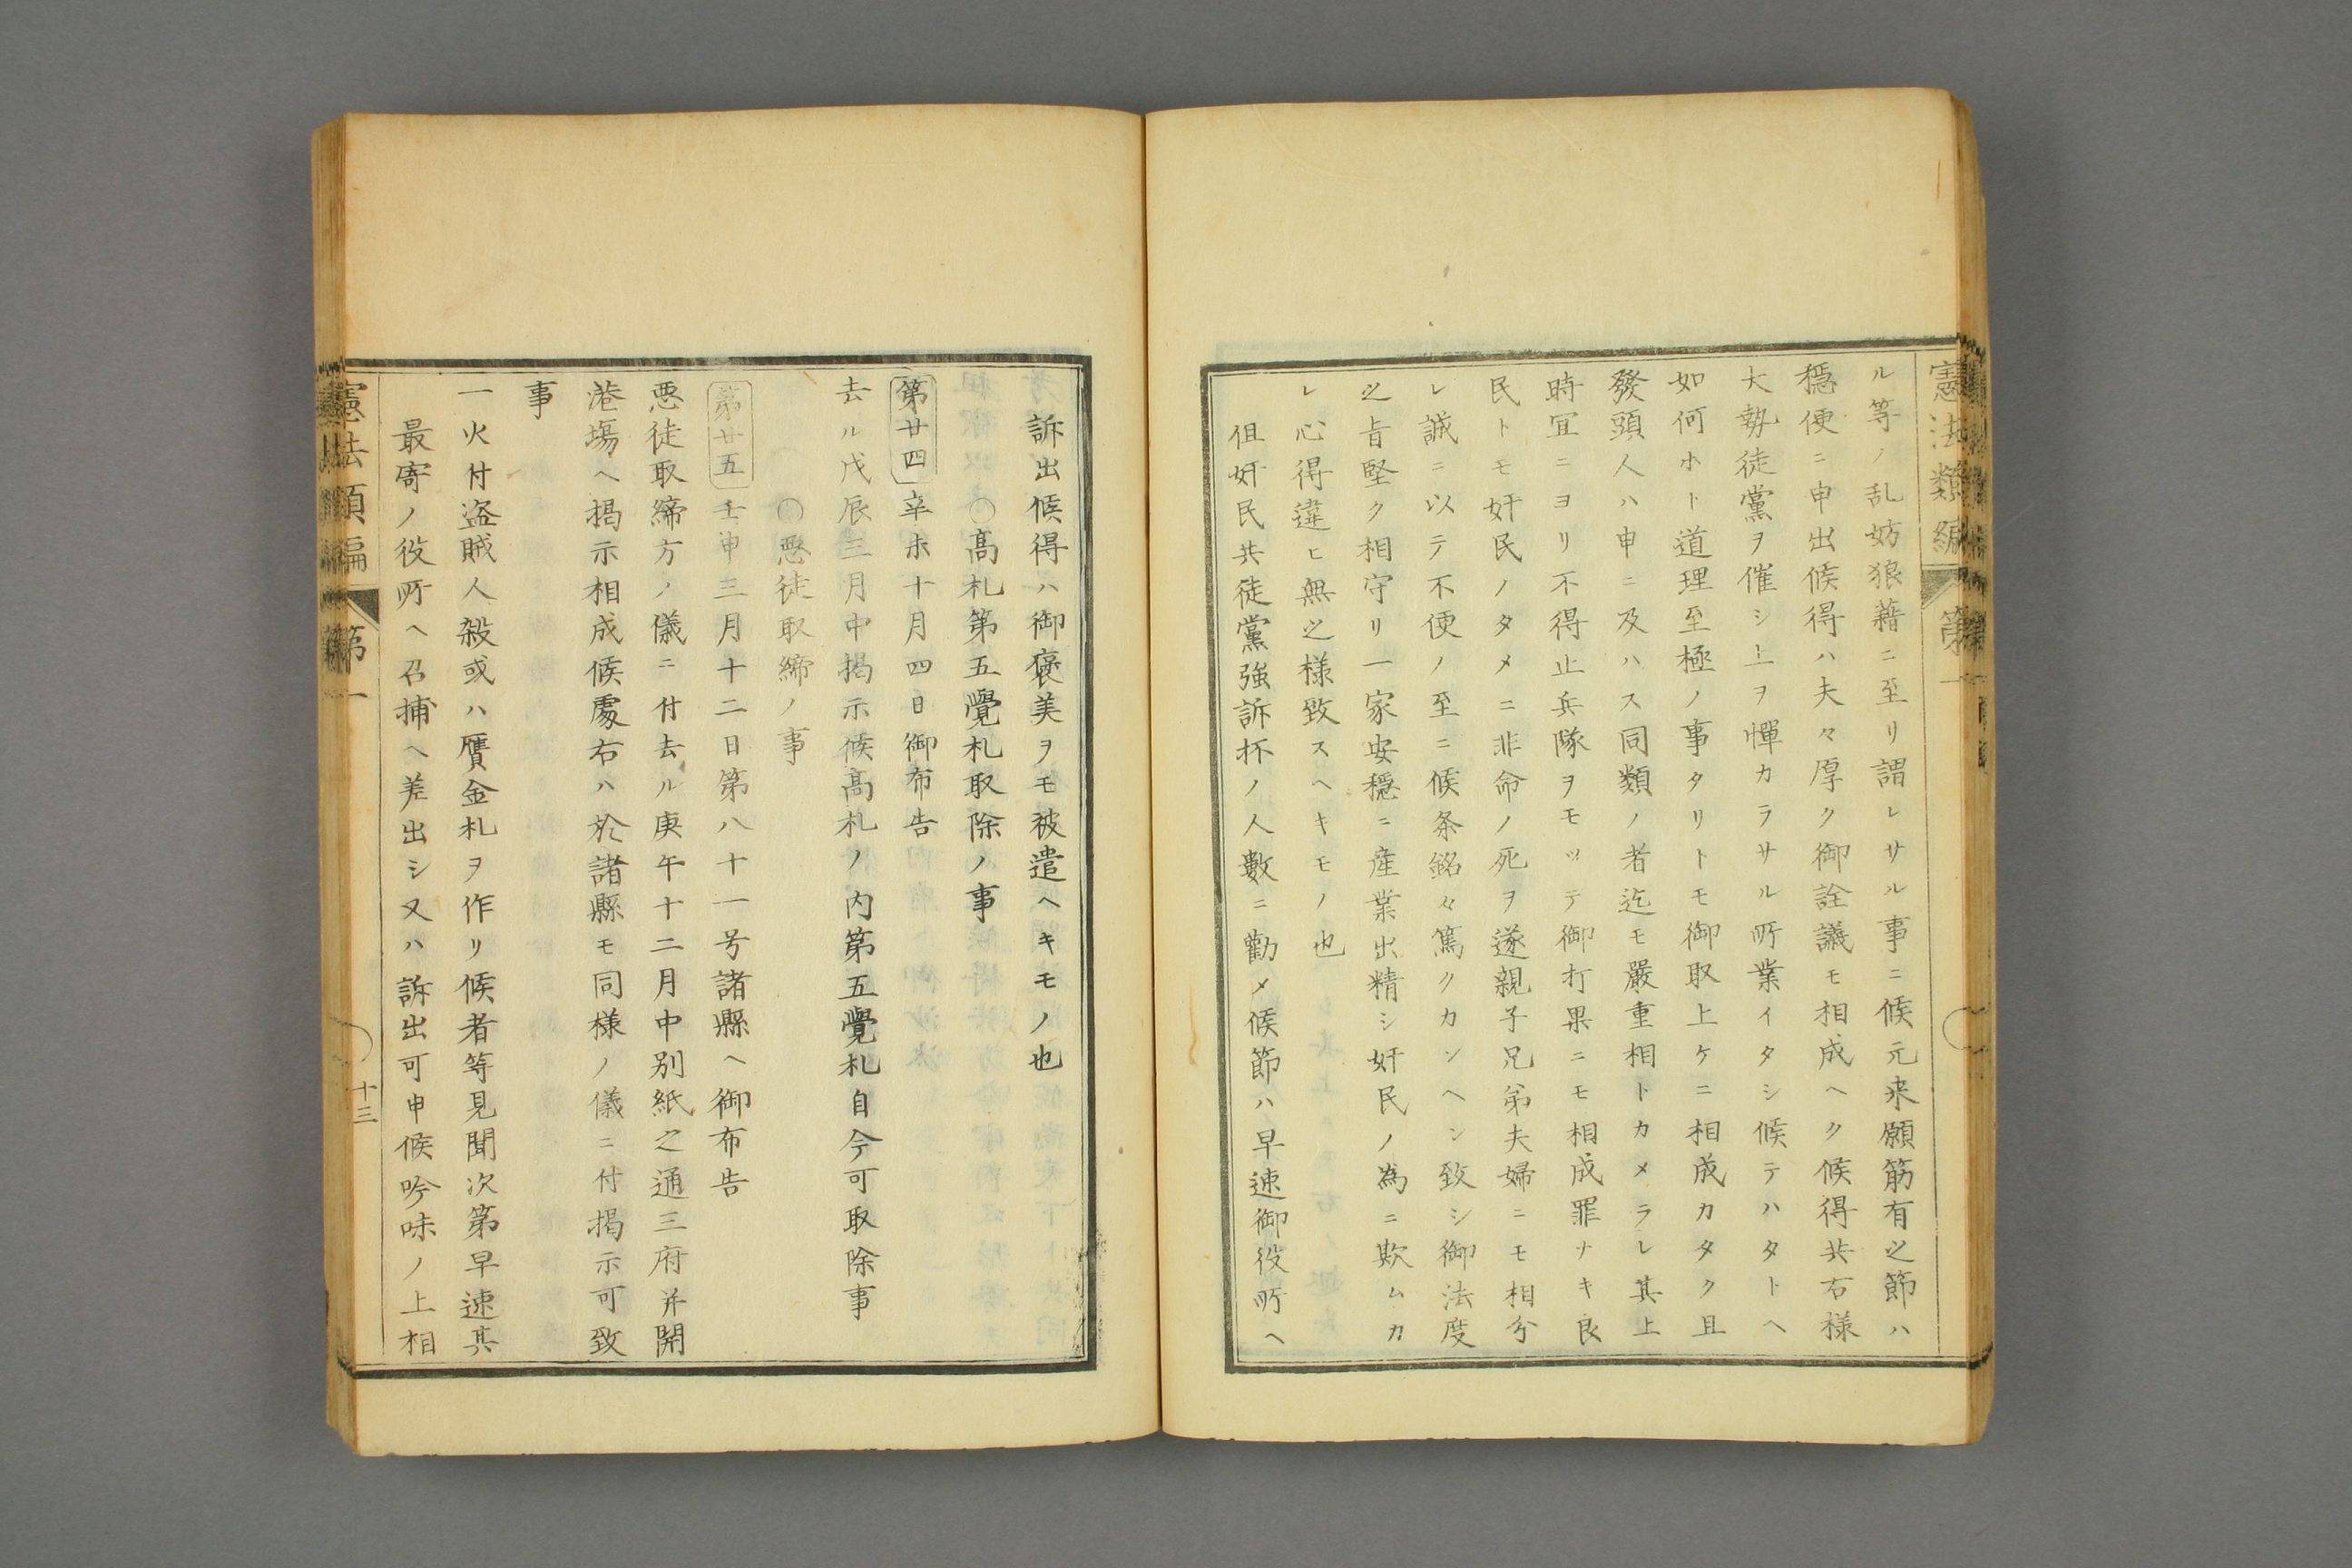 憲法類編 第一
ル等ノ乱妨狼藉ニ至リ謂レサル事ニ候元来願筋有之節ハ
穏便ニ申出候得ハ夫々厚ク御詮議モ相成ヘク候得共右様
大勢徒黨ヲ催シ上ヲ憚カラサル所業イタシ候テハタトヘ
如何ホト道理至極ノ事タリトモ御取上ケニ相成カタク且
發頭人ハ申ニ及ハス同類ノ者迄モ嚴重相トカメラレ其上
時冝ニヨリ不得止兵隊ヲモッテ御打果ニモ相成罪ナキ良
民トモ奸民ノタメニ非命ノ死ヲ遂親子兄弟夫婦ニモ相分
レ誠ニ以テ不便ノ至ニ候条銘々篤クカンヘン致シ御法度
之旨堅ク相守リ一家安穏ニ産業出精シ奸民ノ為ニ欺ムカ
レ心得違ヒ無之様致スヘキモノ也
但奸民共徒黨強訴抔ノ人數ニ勸メ候節ハ早速御役所ヘ
訴出候得ハ御褒美ヲモ被遣ヘキモノ也
○高札第五覺札取除ノ事
第廿四 辛未十月四日御布告
去ル戊辰三月中掲示候高札ノ内第五覺札自今可取除事
○悪徒取締ノ事
第廿五 壬申三月十二日第八十一号諸縣ヘ御布告
悪徒取締方ノ儀ニ付去ル庚午十二月中別紙之通三府并開
港塲ヘ掲示相成候處右ハ於諸縣モ同様ノ儀ニ付掲示可致
事
一火付盗賊人殺或ハ贋金札ヲ作リ候者等見聞次第早速其
最寄ノ役所ヘ召捕ヘ差出シ又ハ訴出可申候吟味ノ上相
憲法類編 第一
十三